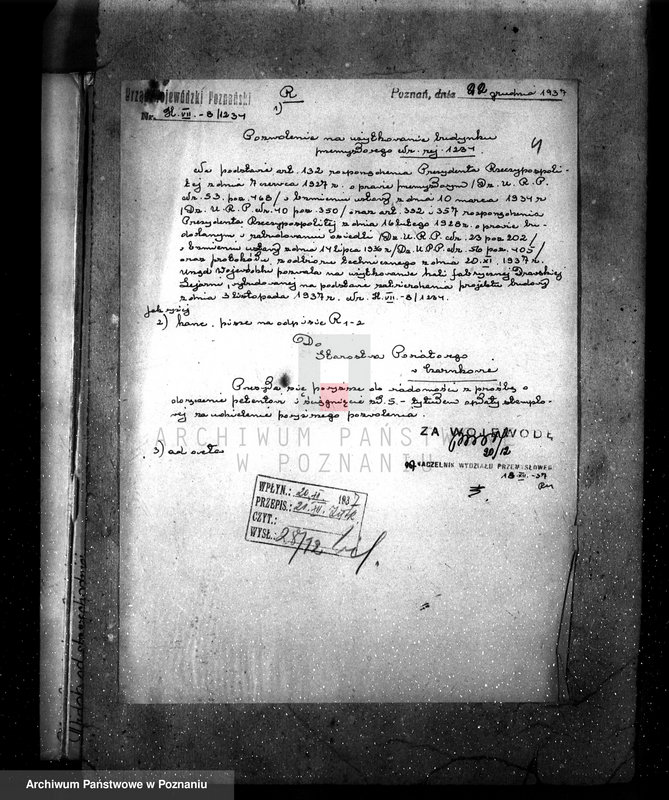 Urząd Wojewódzki Poznański
Poznań, dnia 22 grudnia 1937
Nr. H.VII.-8/1234
R
1)
4
Pozwolenie na użytkowanie budynku
przemysłowego Nr. rej. 1234.
Na podstawie art. 132 rozporządzenia Prezydenta Rzeczypospoli-
tej z dnia 7 czerwca 1927 r. o prawie przemysłowym /Dz. U. R. P.
Nr. 53. poz. 468/ w brzmieniu ustawy z dnia 10 marca 1934 r
/Dz. U. R. P. Nr. 40 poz. 350/ oraz art. 332 i 357 rozporządzenia
Prezydenta Rzeczypospolitej z dnia 16 lutego 1928 r. o prawie bu-
dowlanym i zabudowaniu osiedli /Dz. U. R. P. Nr. 23 poz 202/
w brzmieniu ustawy z dnia 14 lipca 1936 r /Dz. U. R. P. Nr. 56 poz. 405/
oraz protokółu z odbioru technicznego z dnia 20.XI. 1937 r.
Urząd Wojewódzki pozwala na użytkowanie hali fabrycznej
wybudowanej na podstawie zatwierdzenia projektu budowy
z dnia 3 listopada 1937 r. Nr. H.VII.-8/1234.
jak wyżej
2) kanc. pisze na odpisie R 1-2
Do
Starostwa Powiatowego
w Czarnkowie
Przesyła się powyższe do wiadomości z prośbą o
doręczenie petentowi i ściągnięcie zł. 5.- tytułem opłaty stemplo-
wej za udzielenie powyższego pozwolenia.
3) ad acta
ZA WOJEWODĘ
20/12
NACZELNIK WYDZIAŁU PRZEMYSŁOWEGO
18 XII.-37
WPŁYN.: 20.XII. 1937
PRZEPIS.: 21.XII.
CZYT.:
WYSŁ.: 23/12
ARCHIWUM PAŃSTWOWE
W POZNANIU
Archiwum Państwowe w Poznaniu